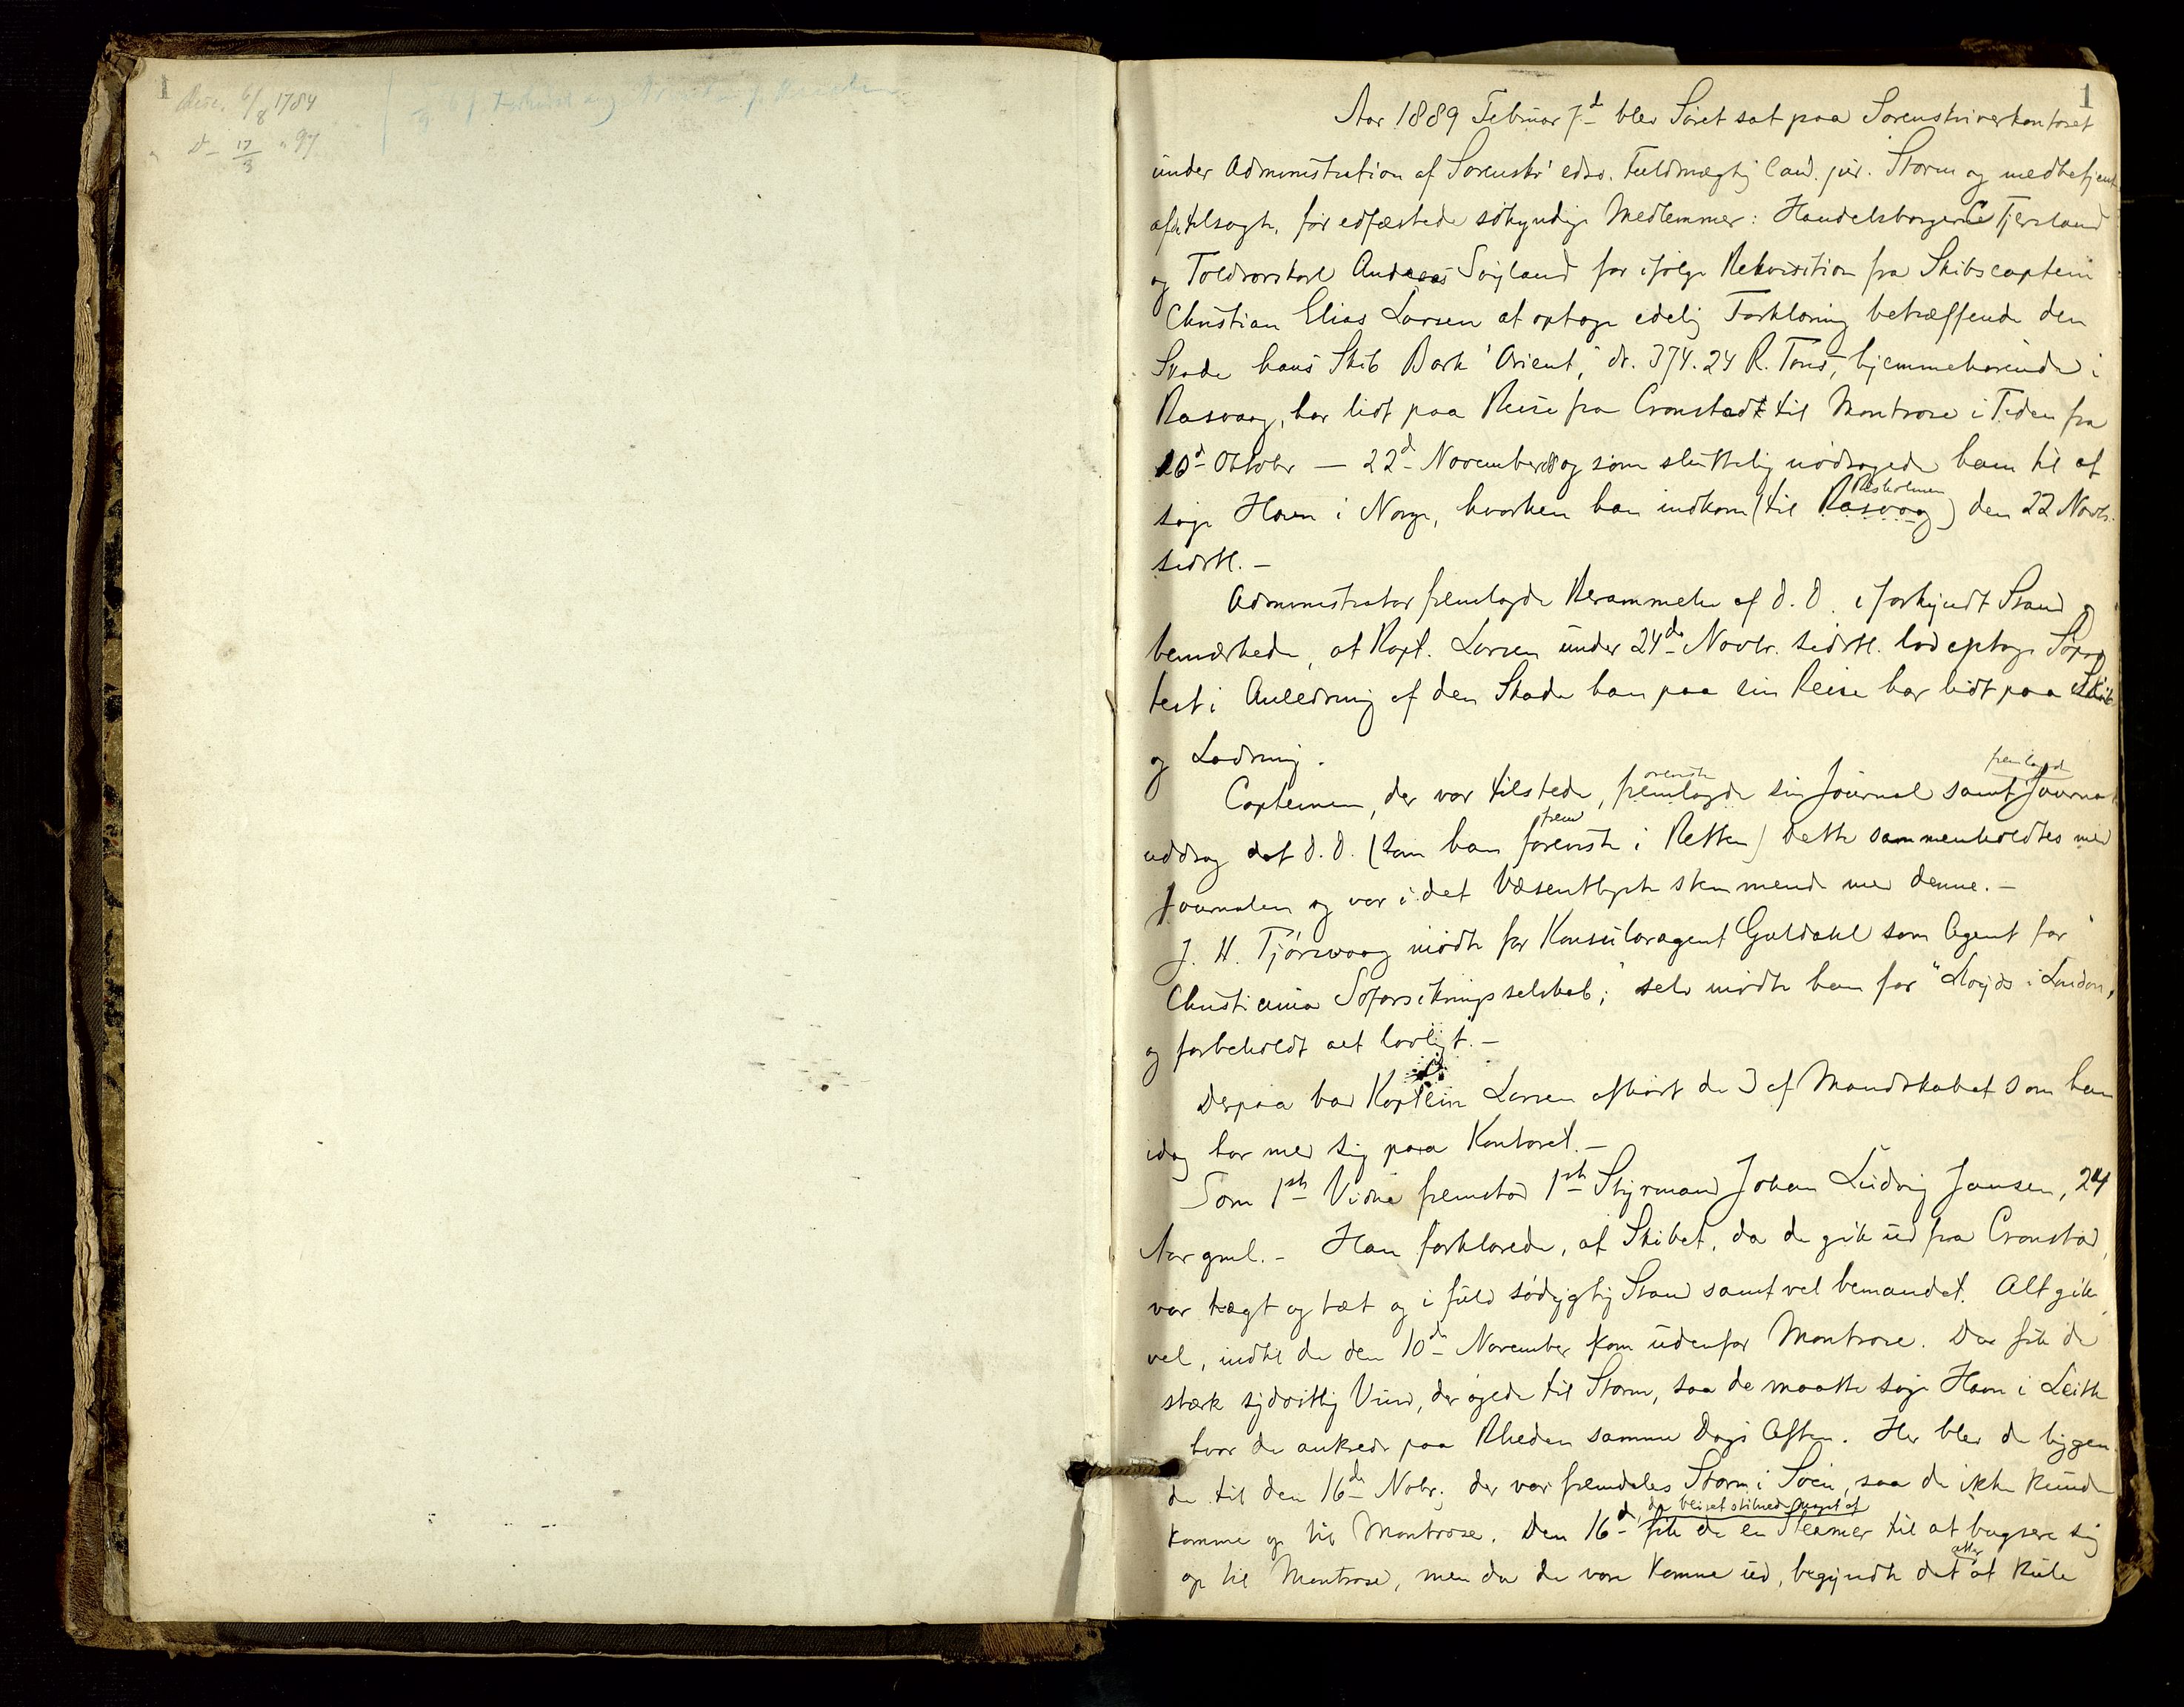 1
Resc. 6/8 1784
" D- 17/3 " 97
1
Aar 1889 Februar 7d blev Søret sat paa Sorenskriverkontoret
under Administration af Sorenskr' edsv. Fuldmægtig Cand. jur. Storm og medbetjent
af de tilsagte, før edfæstede søkyndige Medlemmer: Handelsborger C Tjersland
og Toldrorskarl Andreas Søyland for ifølge Rekvisition fra Skibscaptein
Christian Elias Larsen at optage edelig Forklaring betræffende den
Skade hans Skib Bark "Orient," dr. 374.24 R. Tons, hjemmehørende i
Rasvaag, har lidt paa Reise fra Cronstadt til Montrose i Tiden fra
20d Oktober — 22d November 88 og som sluttelig nødsagede ham til at
søge Havn i Norge, hvorhen han indkom (til Rasvaag) den 22 Novbr.
sidstl. —
Administrator fremlagde Berammelse af d. D. i forkyndt Stand og
bemærkede, at Kapt. Larsen under 24de Novbr. sidstl. lod optage Søpro
test i Anledning af den Skade han paa sin Reise har lidt paa Skib
og Ladning.
fremlagde
oreviste
Capteinen, der var tilstede, fremlagde sin Journal samt Journal
frem
uddrag af d. D. (som han foreviste i Retten) Dette sammenholdtes med
Journalen og var i det Væsentligste stemmende med denne. —
J. H. Tjørsvaag mødte for Konsularagent Guldahl som Agent for "
Christiania Søforsikringsselskab;" selv mødte han for "Lloyds i London,"
og forbeholdt alt lovligt. —
Derpaa bad Kaptein Larsen afhørt de 3 af Mandskabet som han
idag har med sig paa Kontoret. —
Som 1ste Vidne fremstod 1ste Styrmand Johan Ludvig Jansen, 24
Aar gml. — Han forklarede, at Skibet, da de gik ud fra Cronstad,
var tægt og tæt og i fuld sødygtig Stand samt vel bemandet. Alt gik
vel, indtil de den 10de November kom udenfor Montrose. Der fik de
stærk sydostlig Vind, der øgede til Storm, saa de maatte søge Havn i Leith
hvor de ankrede paa Rheden samme Dags Aften. Her blev de liggen
de til den 16de Nobr; der var fremdeles Storm i Søen, saa de ikke kunde
da veiret stilnede noget af
komme op til Montrose. Den 16d fik de en Steamer til at bugsere sig
atter
op til Montrose, men da de vare komne ud, begyndte det at kule